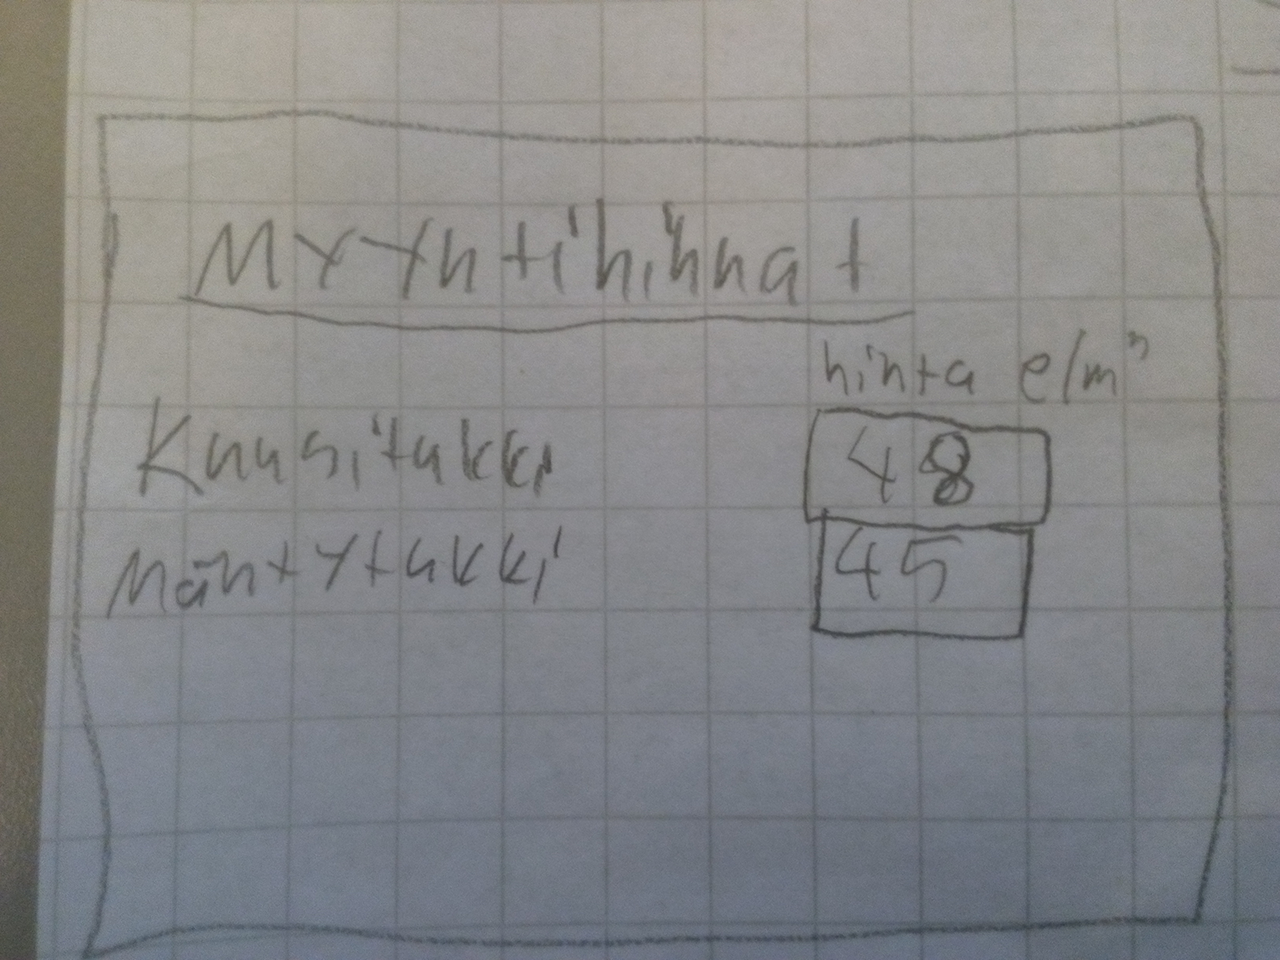 Myyntihinnat
hinta e/m³
Kuusitukki 48
Mäntytukki 45